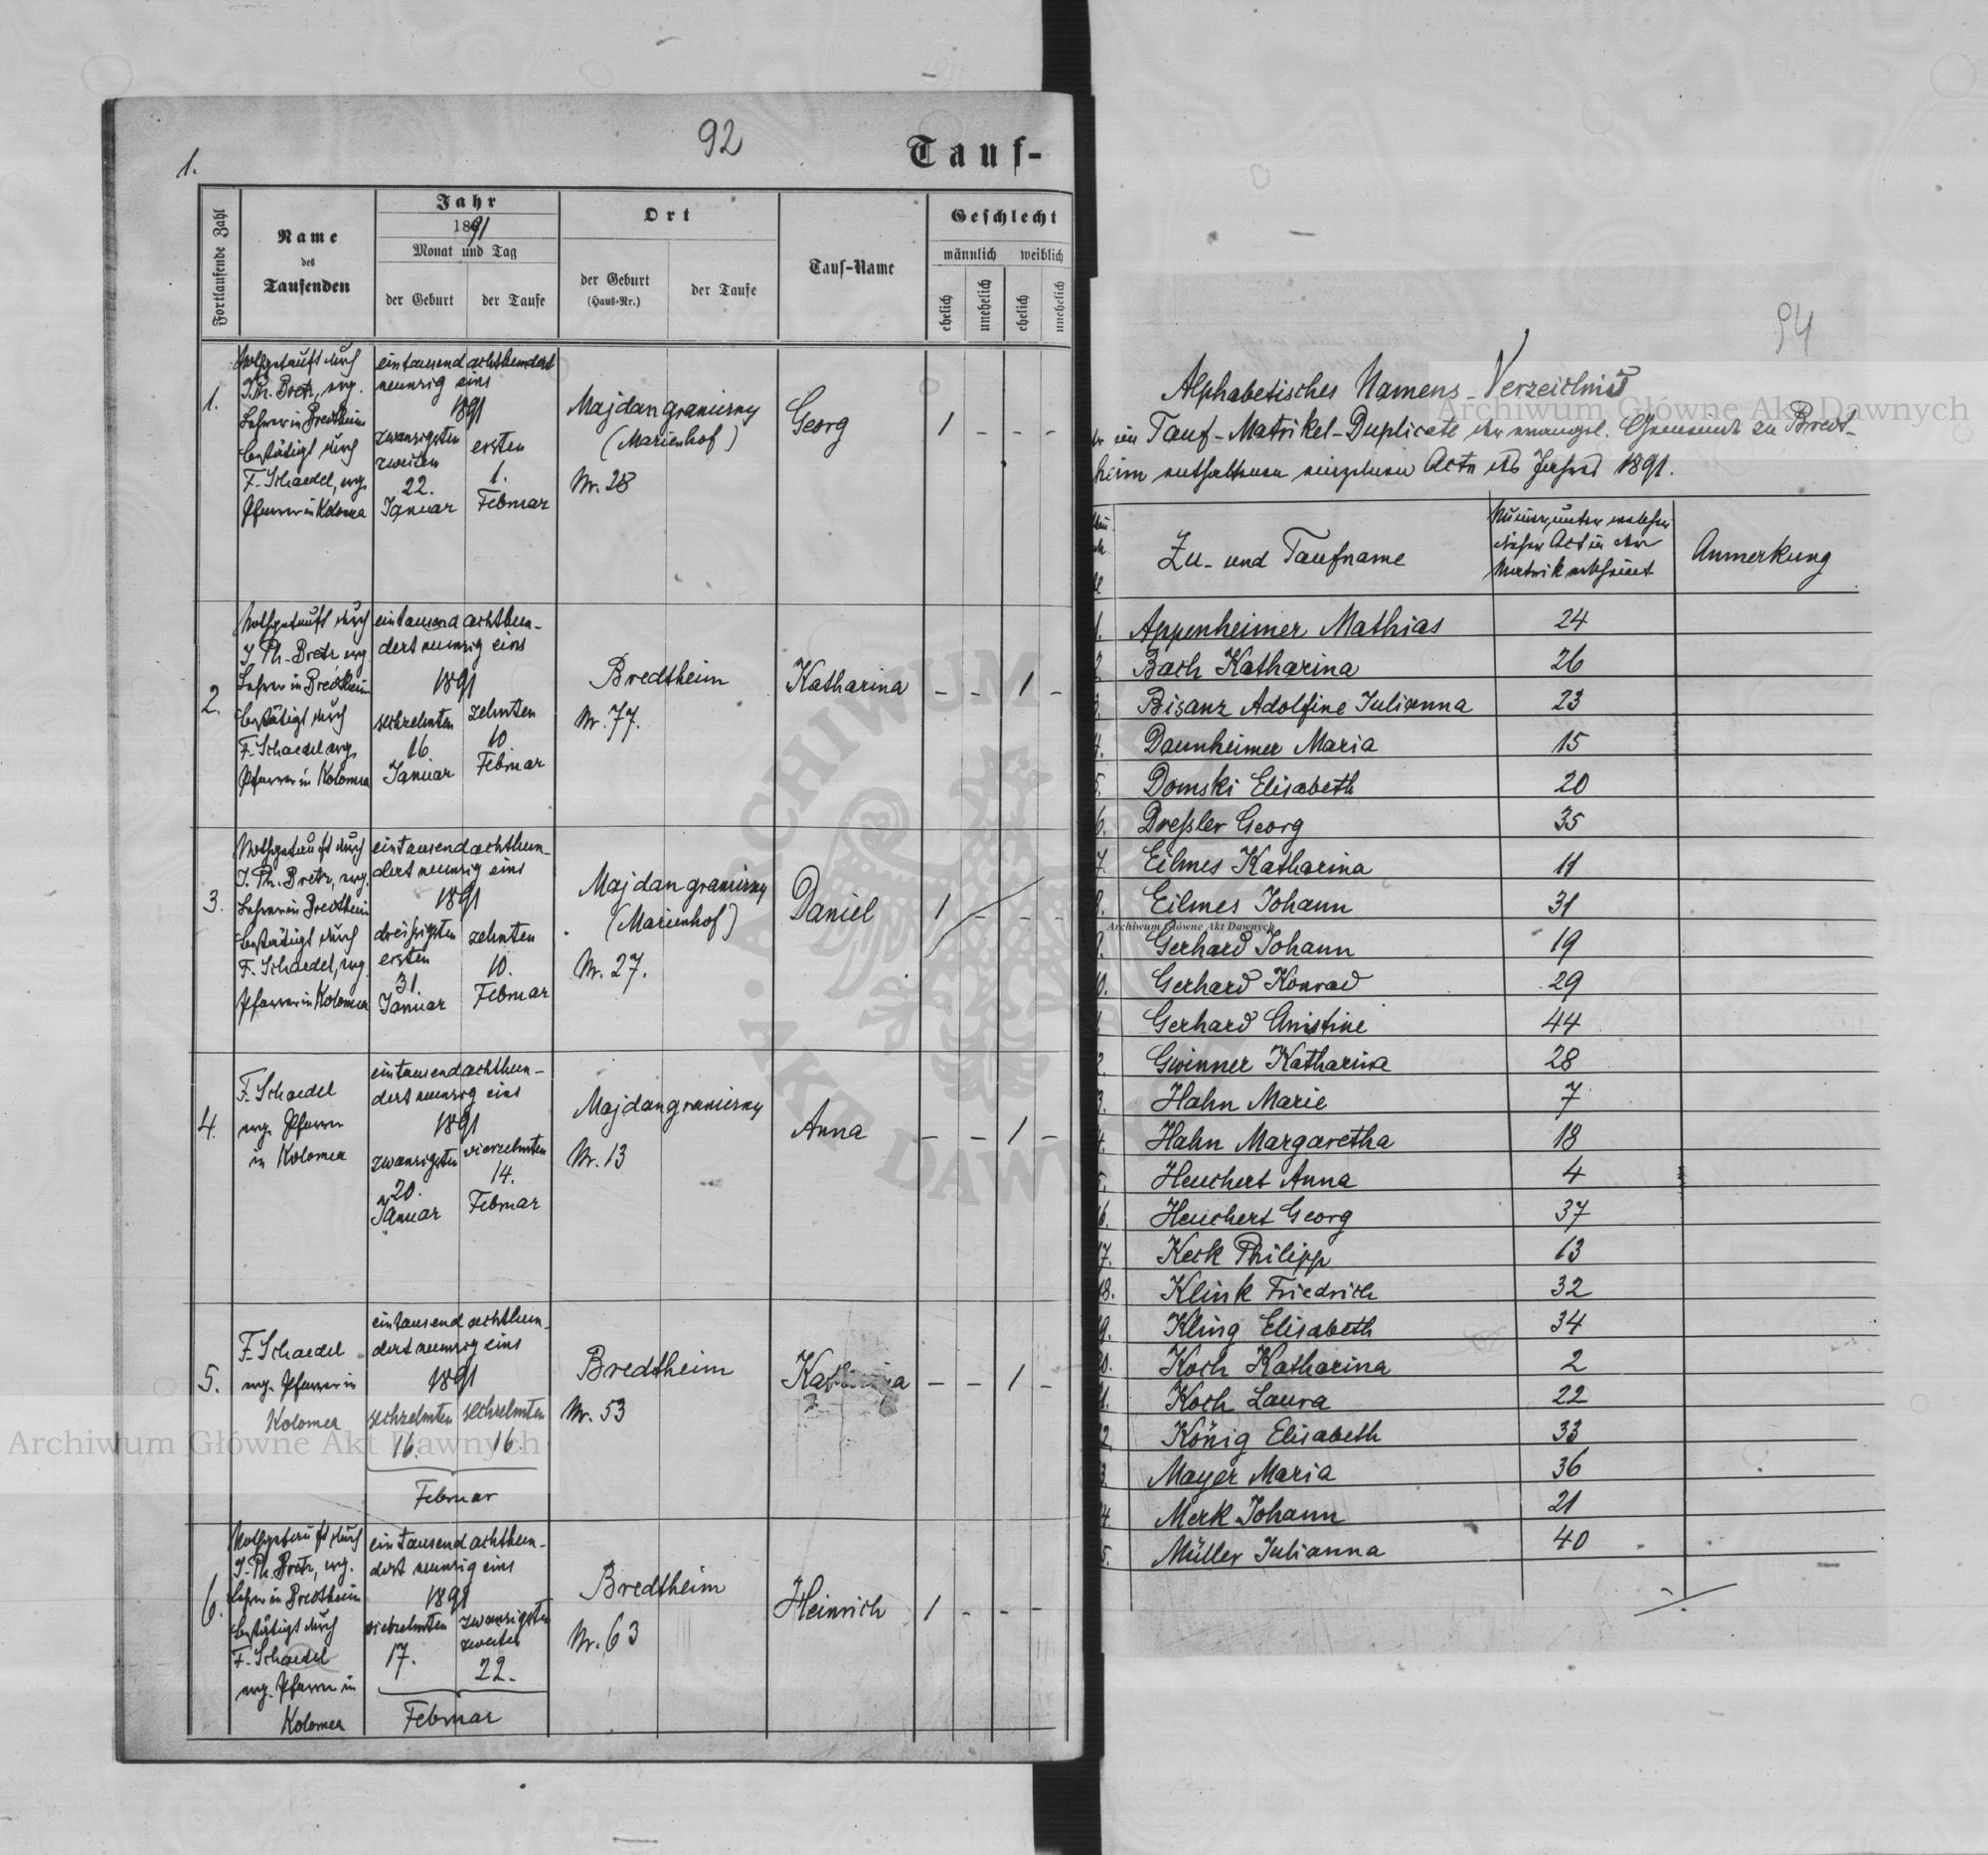 92
1.
Tauf-
Fortlaufende Zahl
Name
des
Taufenden
Jahr
1891
Monat und Tag
der Geburt
der Taufe
Ort
der Geburt
(Haus-Nr.)
der Taufe
Tauf-Name
Geschlecht
männlich weiblich
ehelich
unehelich
ehelich
unehelich
1.
Nothgetauft durch
J. Ph. Bretz, evg.
Lehrer in Bredtheim
bestätigt durch
F. Schaedel, evg.
Pfarrer in Kolomea
eintausend achthundert
neunzig eins
1891
zwanzigsten
zweiten
22.
Januar
ersten
1.
Februar
Majdan graniczny
(Marienhof)
Nr. 28
Georg
1 - - -
2.
Nothgetauft durch
J. Ph. Bretz evg.
Lehrer in Bredtheim
bestätigt durch
F. Schaedel evg.
Pfarrer in Kolomea
eintausend achthun-
dert neunzig eins
1891
sechzehnten
16
Januar
zehnten
10
Februar
Bredtheim
Nr. 77.
Katharina
- - 1 -
3.
Nothgetauft durch
J. Ph. Bretz, evg.
Lehrer in Bredtheim
bestätigt durch
F. Schaedel, evg.
Pfarrer in Kolomea
eintausend achthun-
dert neunzig eins
1891
dreissigsten
ersten
31.
Januar
zehnten
10.
Februar
Majdan graniczny
(Marienhof)
Nr. 27.
Daniel
1 - - -
4.
F. Schaedel
evg. Pfarrer
in Kolomea
eintausend achthun-
dert neunzig eins
1891
zwanzigsten
20.
Januar
vierzehnten
14.
Februar
Majdan graniczny
Nr. 13
Anna
- - 1 -
5.
F. Schaedel
evg. Pfarrer in
Kolomea
eintausend achthun-
dert neunzig eins
1891
sechzehnten sechzehnten
16. 16.
Februar
Bredtheim
Nr. 53
Katharina
- - 1 -
6.
Nothgetauft durch
J. Ph. Bretz, evg.
Lehrer in Bredtheim
bestätigt durch
F. Schaedel
evg. Pfarrer in
Kolomea
eintausend achthun-
dert neunzig eins
1891
siebzehnten
17.
zwanzigsten
zweiten
22.
Februar
Bredtheim
Nr. 63
Heinrich
1 - - -
94
Alphabetisches Namens-Verzeichnis
der im Tauf-Matrikel-Duplicate der evangel. Gemeinde zu Bredt-
heim enthaltenen einzelnen Acte des Jahres 1891.
Zu- und Taufname
Nummer, unter welcher
dieser Act in der
Matrik erscheint
Anmerkung
1. Appenheimer Mathias 24
2. Bach Katharina 26
3. Bisanz Adolfine Julianna 23
4. Dannheimer Maria 15
5. Domski Elisabeth 20
6. Dreßler Georg 35
7. Eilmes Katharina 11
8. Eilmes Johann 31
9. Gerhard Johann 19
0. Gerhard Konrad 29
1 Gerhard Christine 44
2. Gwinner Katharina 28
3. Hahn Marie 7
4. Hahn Margaretha 18
5. Heuchert Anna 4
6. Heuchert Georg 37
7. Keck Philipp 13
18. Klink Friedrich 32
9. Kling Elisabeth 34
0. Koch Katharina 2
1. Koch Laura 22
2. König Elisabeth 33
3. Mayer Maria 36
4. Merk Johann 21
5. Müller Julianna 40
Archiwum Główne Akt Dawnych
Archiwum Główne Akt Dawnych
Archiwum Główne Akt Dawnych
ARCHIWUM
AKT DAW